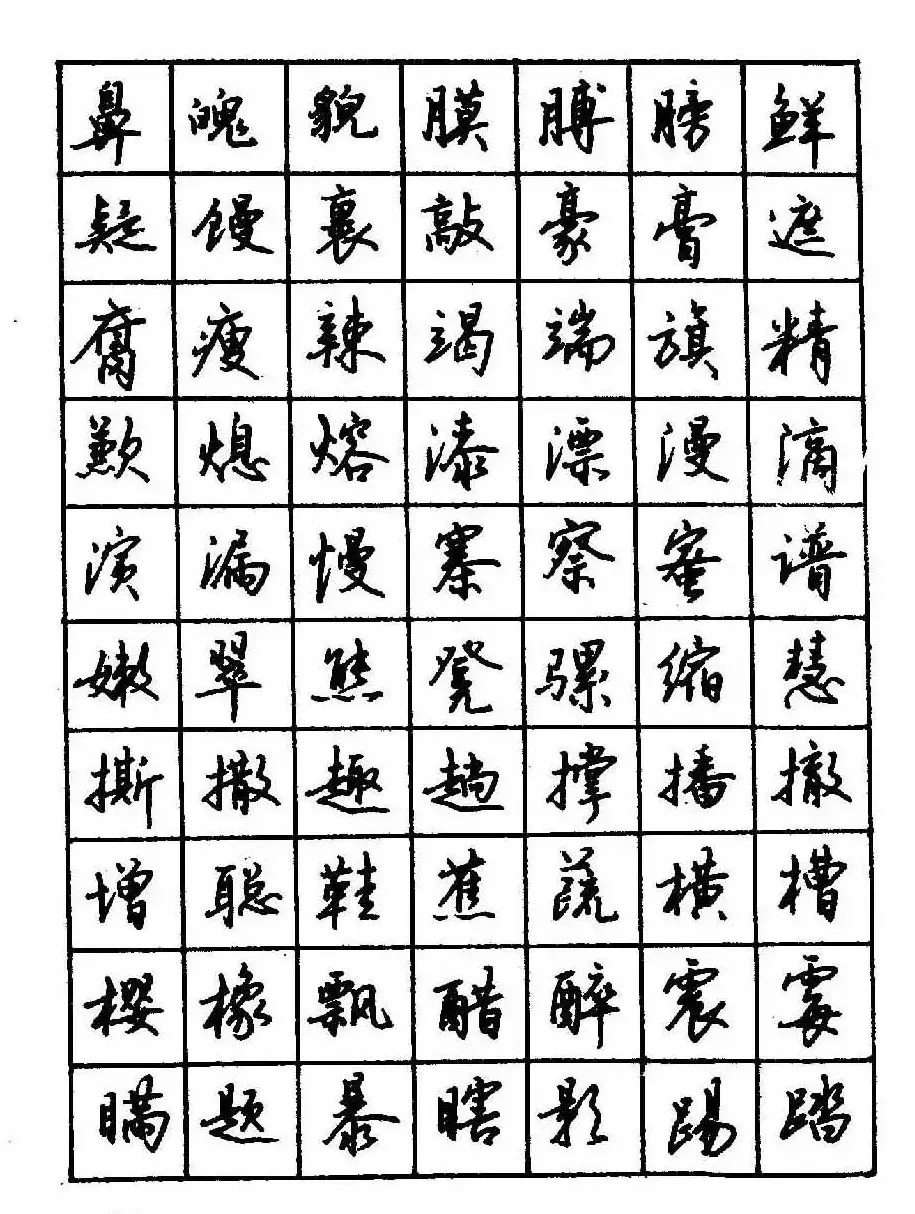 鼻魄貌膜膊膀鲜
疑馒裹敲豪膏遮
腐瘦辣竭端旗精
歉熄熔漆漂漫滴
演漏慢寨察蜜谱
嫩翠熊凳骡缩慧
撕撒趣趟撑播撤
增聪鞋蕉蔬横槽
樱橡飘醋醉震霉
瞒题暴瞎影踢踏